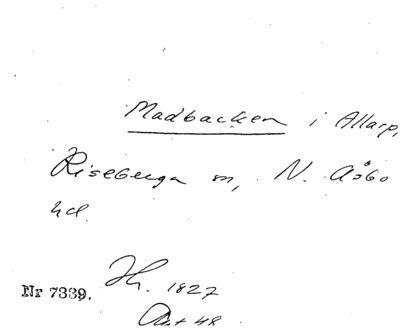 Madbacken i Allarp,
Riseberga sn, N. Åsbo
hd.
Nr 7339. Hz. 1827
Akt 48